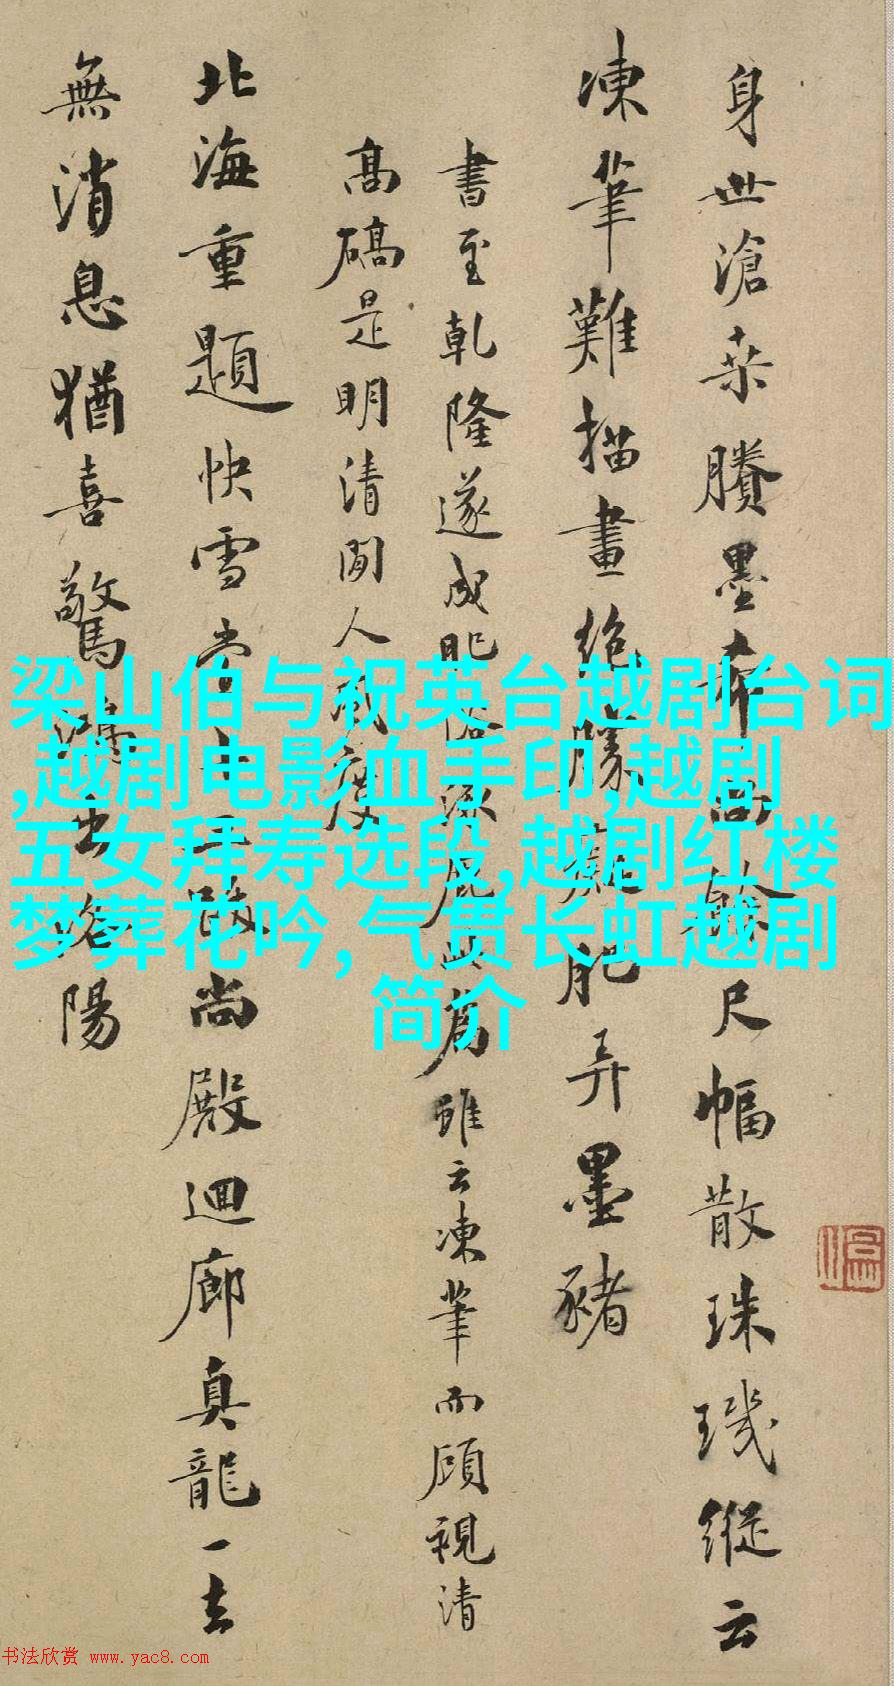 身世滄桑賸墨
尺幅散珠璣縱云
凍筆難描畫絕勝
肥弄墨豬
書至乾隆遂成肥俗
爲雖云凍筆而顧視清
高礄是明清間人
北海重題快雪堂
尚殿迴廊真龍一去
無消息猶喜驚鴻出洛陽
梁山伯与祝英台越剧台词
,越剧电影血手印,越剧
五女拜寿选段,越剧红楼
梦葬花吟,气贯长虹越剧
简介
书法欣赏 www.yac8.com